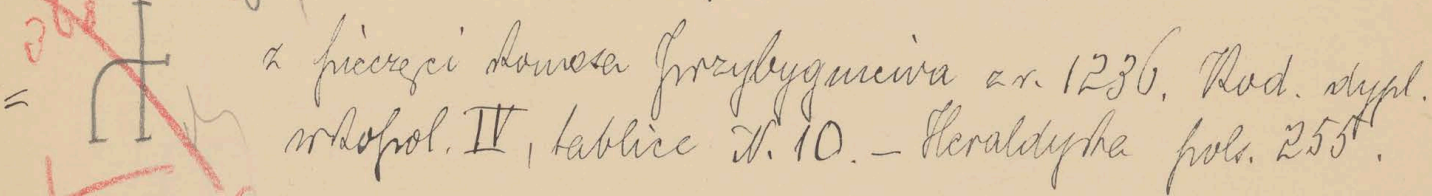 z pieczęci komesa Przybygniewa z r. 1236. Kod. dypl.
wkopol. IV, tablice N. 10. – Heraldyka pols. 255.